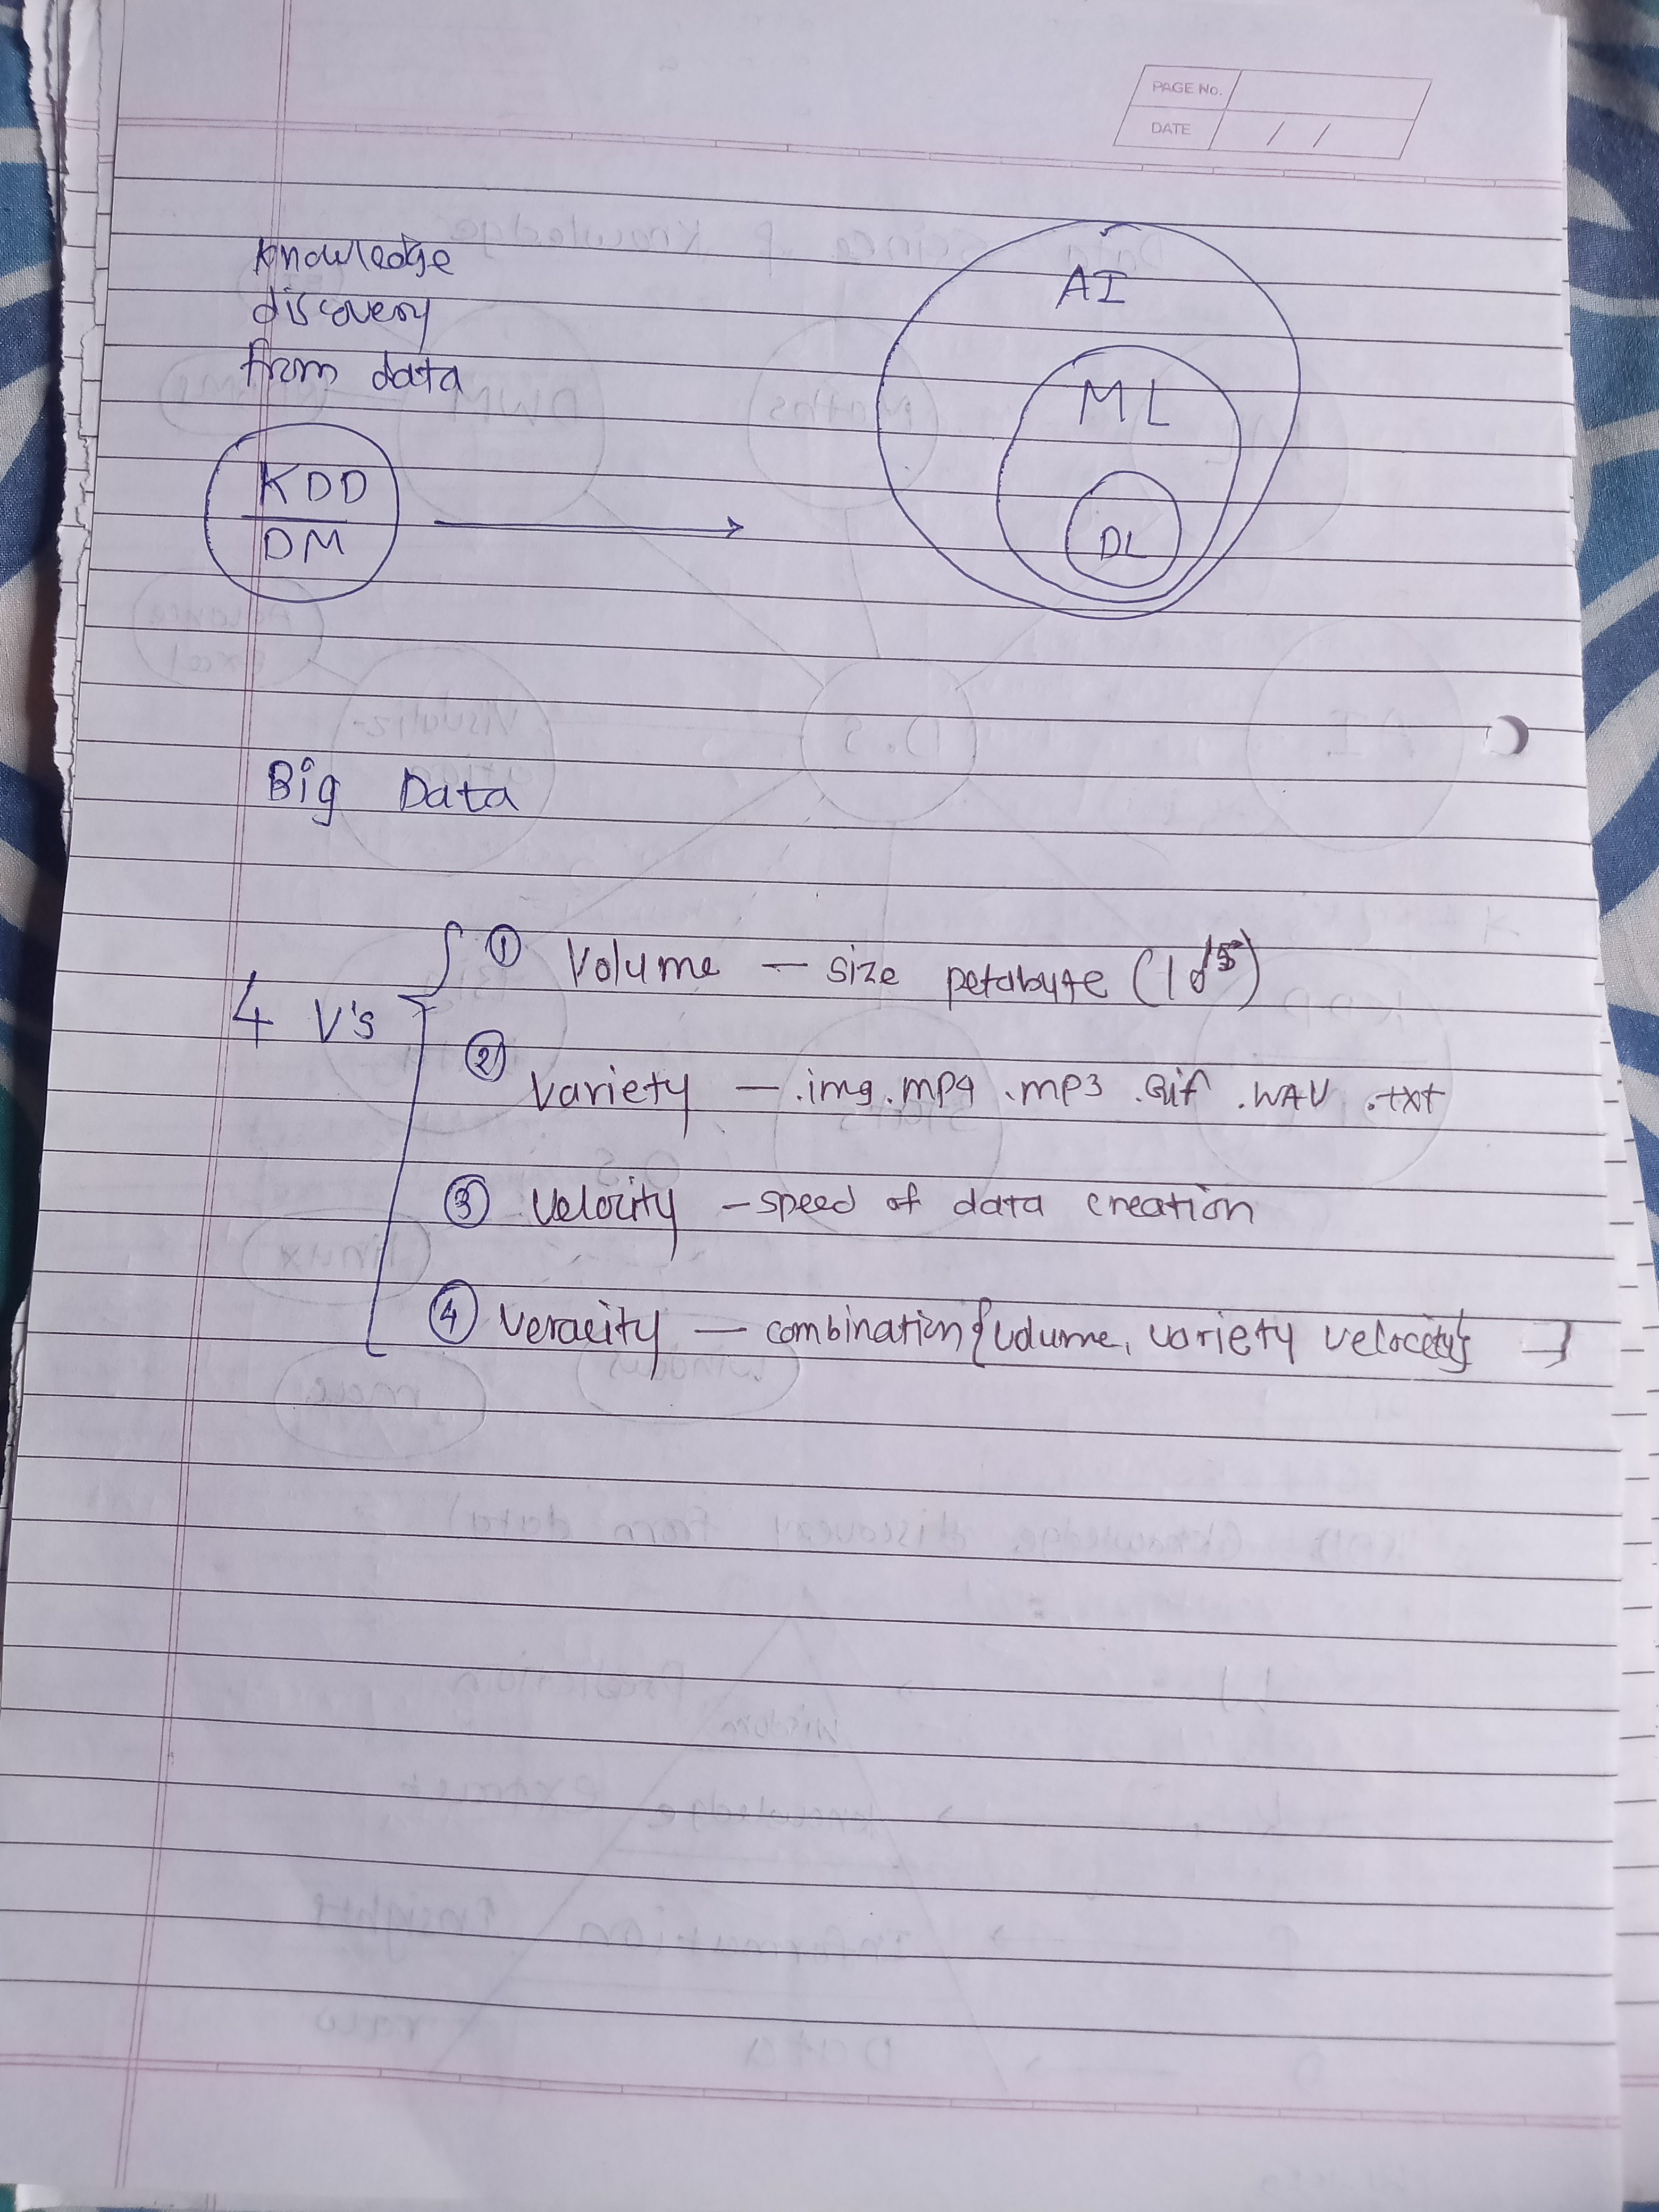 PAGE No.
DATE / /
Knowledge
discovery
from data
KDD
DM
AI
ML
DL
Big Data
4 V's
① Volume — size petabyte (10¹⁵)
② Variety — .img .mp4 .mp3 .Gif .WAV .txt
③ Velocity — speed of data creation
④ Veracity — combination {volume, variety velocity}